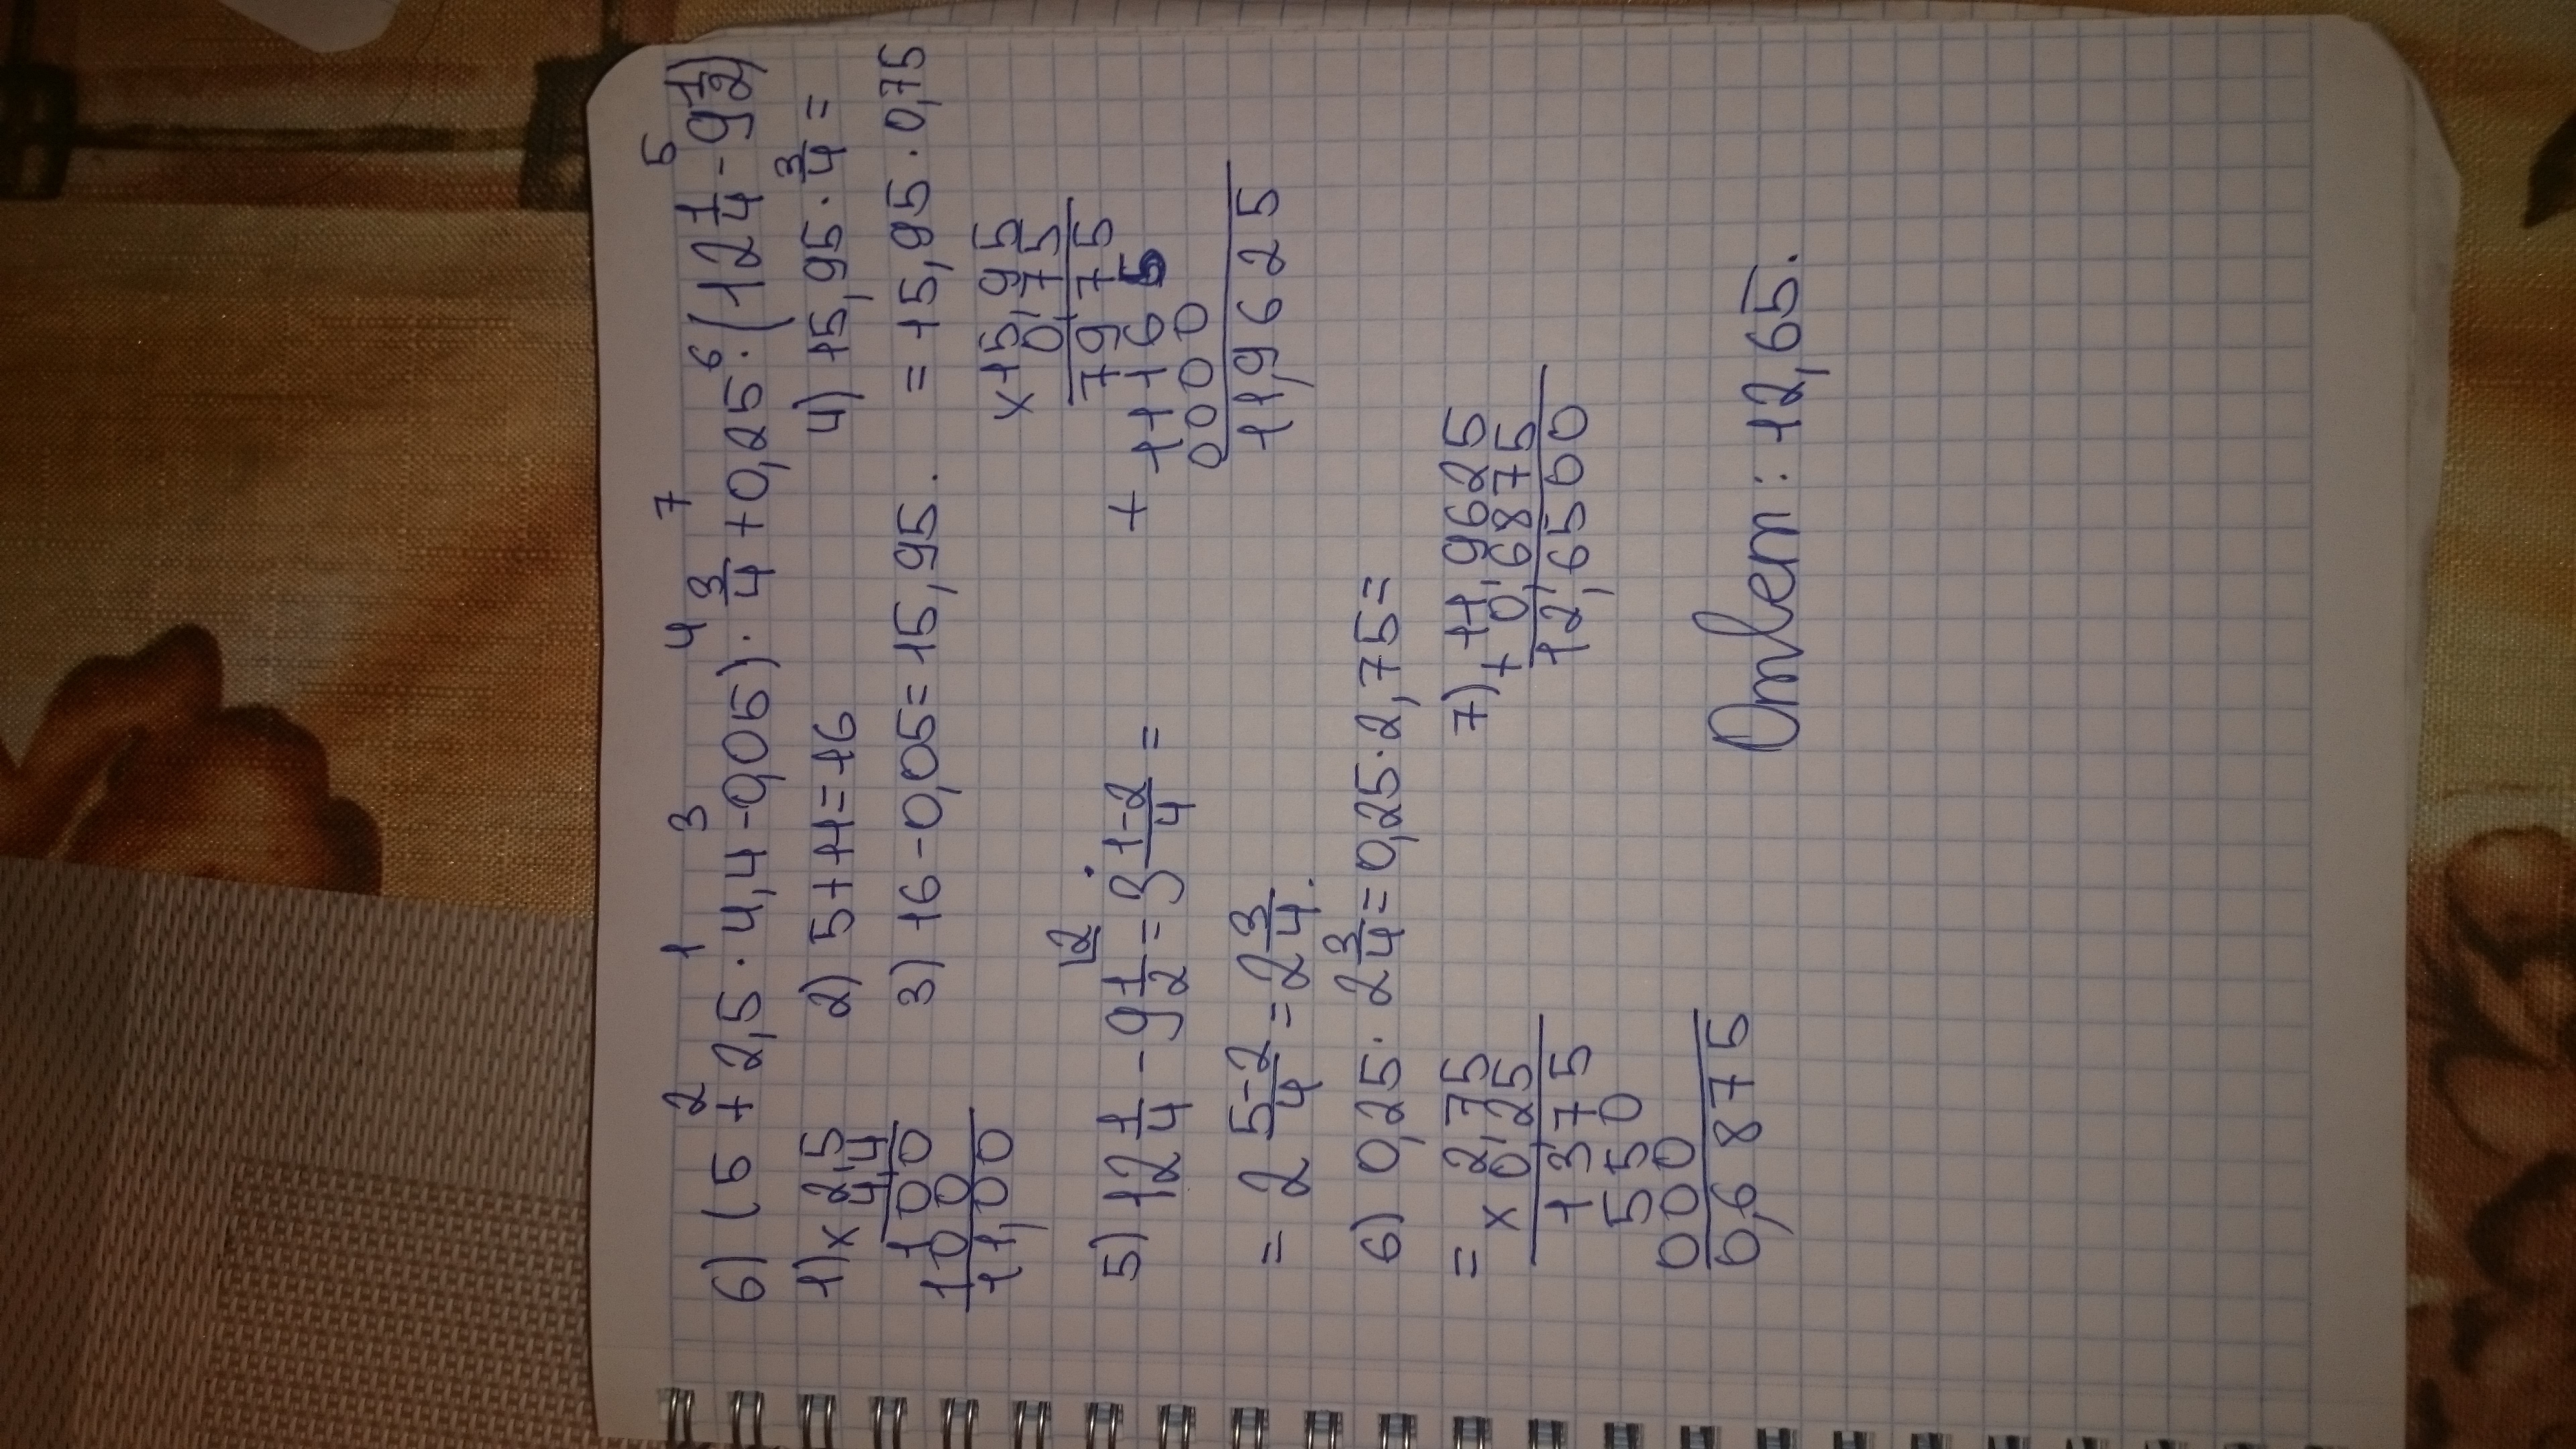 6) (5 + 2,5 · 4,4 - 0,05) · 3/4 + 0,25 · (12 1/4 - 9 1/2)
2 1 3 4 7 6 5
1) × 2,5
4,4
100
100
11,00
2) 5 + 11 = 16
3) 16 - 0,05 = 15,95.
4) 15,95 · 3/4 =
= 15,95 · 0,75
× 15,95
0,75
7975
+ 1116 5
0000
11,9625
5) 12 1/4 - 9 1/2 = 3 1-2/4 =
2
= 2 5-2/4 = 2 3/4.
6) 0,25 · 2 3/4 = 0,25 · 2,75 =
= × 2,75
0,25
1375
550
000
0,6875
7) + 11,9625
0,6875
12,6500
Ответ: 12,65.